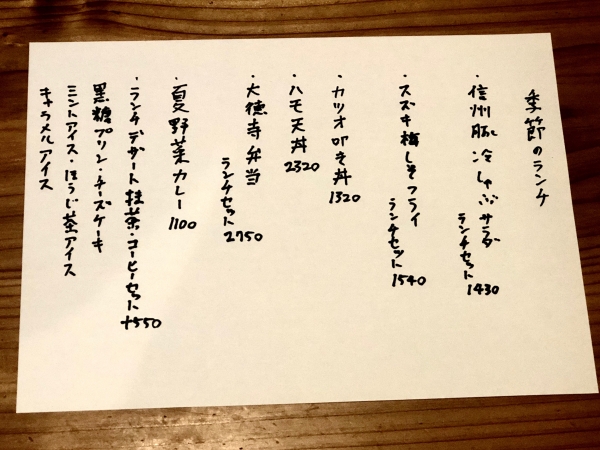 季節のランチ
・信州豚冷しゃぶサラダ
ランチセット
1430
・スズキ梅しそフライ
ランチセット
1540
・カツオ叩き丼
1320
・ハモ天丼
2320
・大徳寺弁当
ランチセット
2750
・夏野菜カレー
1100
・ランチデザート抹茶・コーヒーセット
+550
黒糖プリン・チーズケーキ
ミントアイス・ほうじ茶アイス
キャラメルアイス